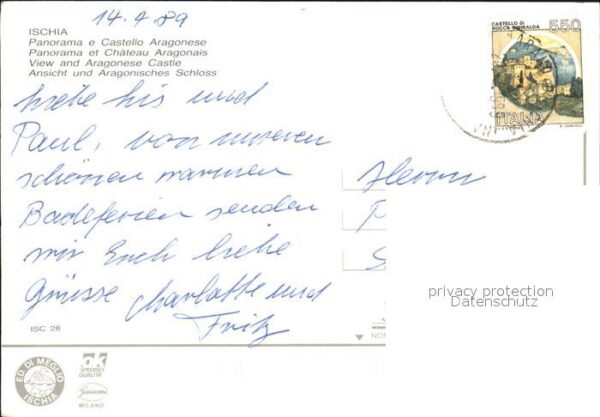 14.9.89
ISCHIA
Panorama e Castello Aragonese
Panorama et Château Aragonais
View and Aragonese Castle
Ansicht und Aragonisches Schloss
CASTELLO DI
ROCCA SINIBALDA
550
ITALIA
Liebe Iris und
Paul, von unseren
schönen warmen
Badeferien senden
wir Euch liebe
Grüsse Charlotte und
Fritz
Herrn
P
S
privacy protection
Datenschutz
ISC 28
NON
ED. DI MEGLIO
ISCHIA
OK
SPEDISCI
QUALITÀ
MILANO